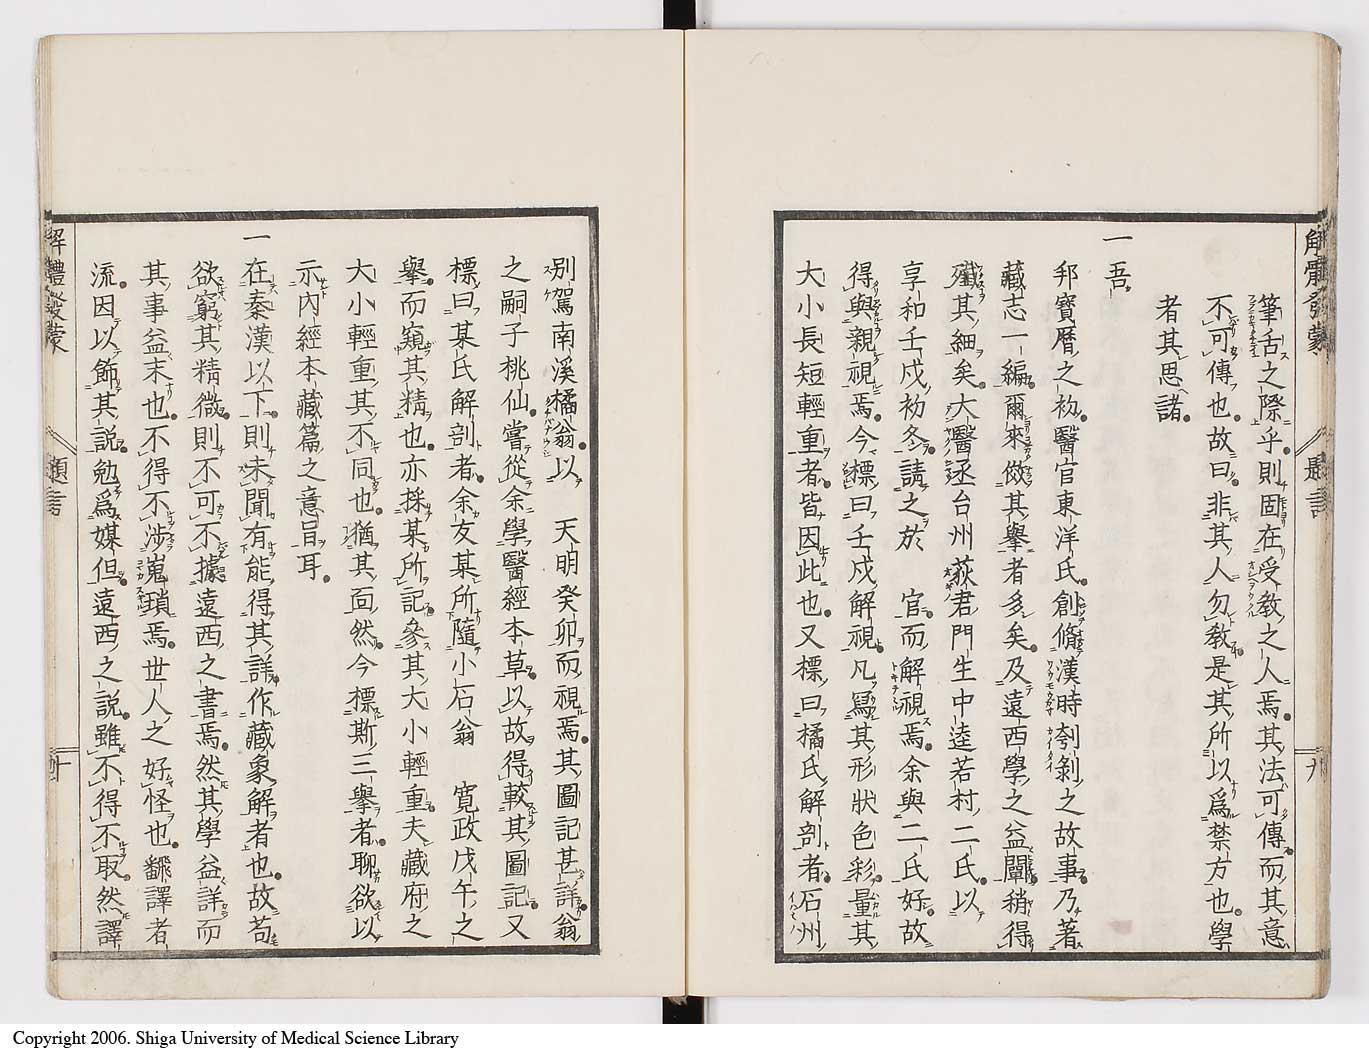 筆舌之際乎則固在受教之人焉其法可傳而其意
不可傳也故曰非其人勿教是其所以爲禁方也學
者其思諸
一吾
邦寶曆之初醫官東洋氏創脩漢時刳剝之故事乃著
藏志一編爾來倣其擧者多矣及遠西學之益闡稍得
殲其細矣大醫丞台州荻君門生中逵若村二氏以
享和壬戌初冬請之於　官而解視焉余與二氏好故
得與親視焉今標曰壬戌解視凡爲其形狀色彩量其
大小長短輕重者皆因此也又標曰橘氏解剖者石州
解體發蒙
題言
九
別駕南溪橘翁以　天明癸卯而視焉其圖記甚詳翁
之嗣子桃仙嘗從余學醫經本草以故得較其圖記又
標曰某氏解剖者余友某所隨小石翁　寬政戊午之
擧而窺其精也亦採某所記參其大小輕重夫藏府之
大小輕重其不同也猶其面然今標斯三擧者聊欲以
示內經本藏篇之意旨耳
一
在秦漢以下則未聞有能得其詳作藏象解者也故苟
欲窮其精微則不可不據遠西之書焉然其學益詳而
其事益末也不得不涉嵬瑣焉世人之好怪也飜譯者
流因以飾其說勉爲媒但遠西之說雖不得不取然譯
解體發蒙
題言
十
Copyright 2006. Shiga University of Medical Science Library